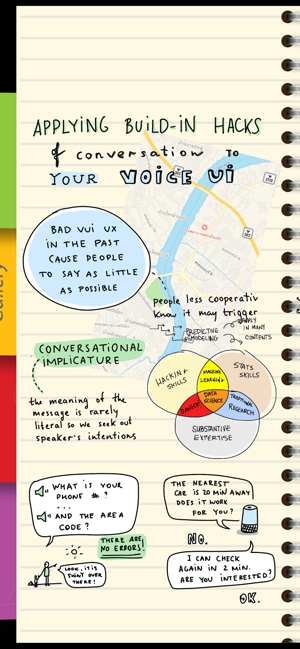 APPLYING BUILD-IN HACKS
of conversation TO
YOUR VOICE UI
BAD VUI UX
IN THE PAST
CAUSE PEOPLE
TO SAY AS LITTLE
AS POSSIBLE
people less cooperativ
know it may trigger
PREDICTIVE
MODELING
IN MANY
CONTENTS
CONVERSATIONAL
IMPLICATURE
the meaning of the
message is rarely
literal so we seek out
speaker's intentions
HACKING
SKILLS
MACHINE
LEARNING
STATS
SKILLS
DANGER
DATA
SCIENCE
TRADITIONAL
RESEARCH
SUBSTANTIVE
EXPERTISE
WHAT IS YOUR
PHONE #?
...
AND THE AREA
CODE?
THERE ARE
NO ERRORS!
LOOK, IT IS
OVER
THERE!
THE NEAREST
CAR IS 20 MIN AWAY
DOES IT WORK
FOR YOU?
NO.
I CAN CHECK
AGAIN IN 2 MIN.
ARE YOU INTERESTED?
OK.
Gallery